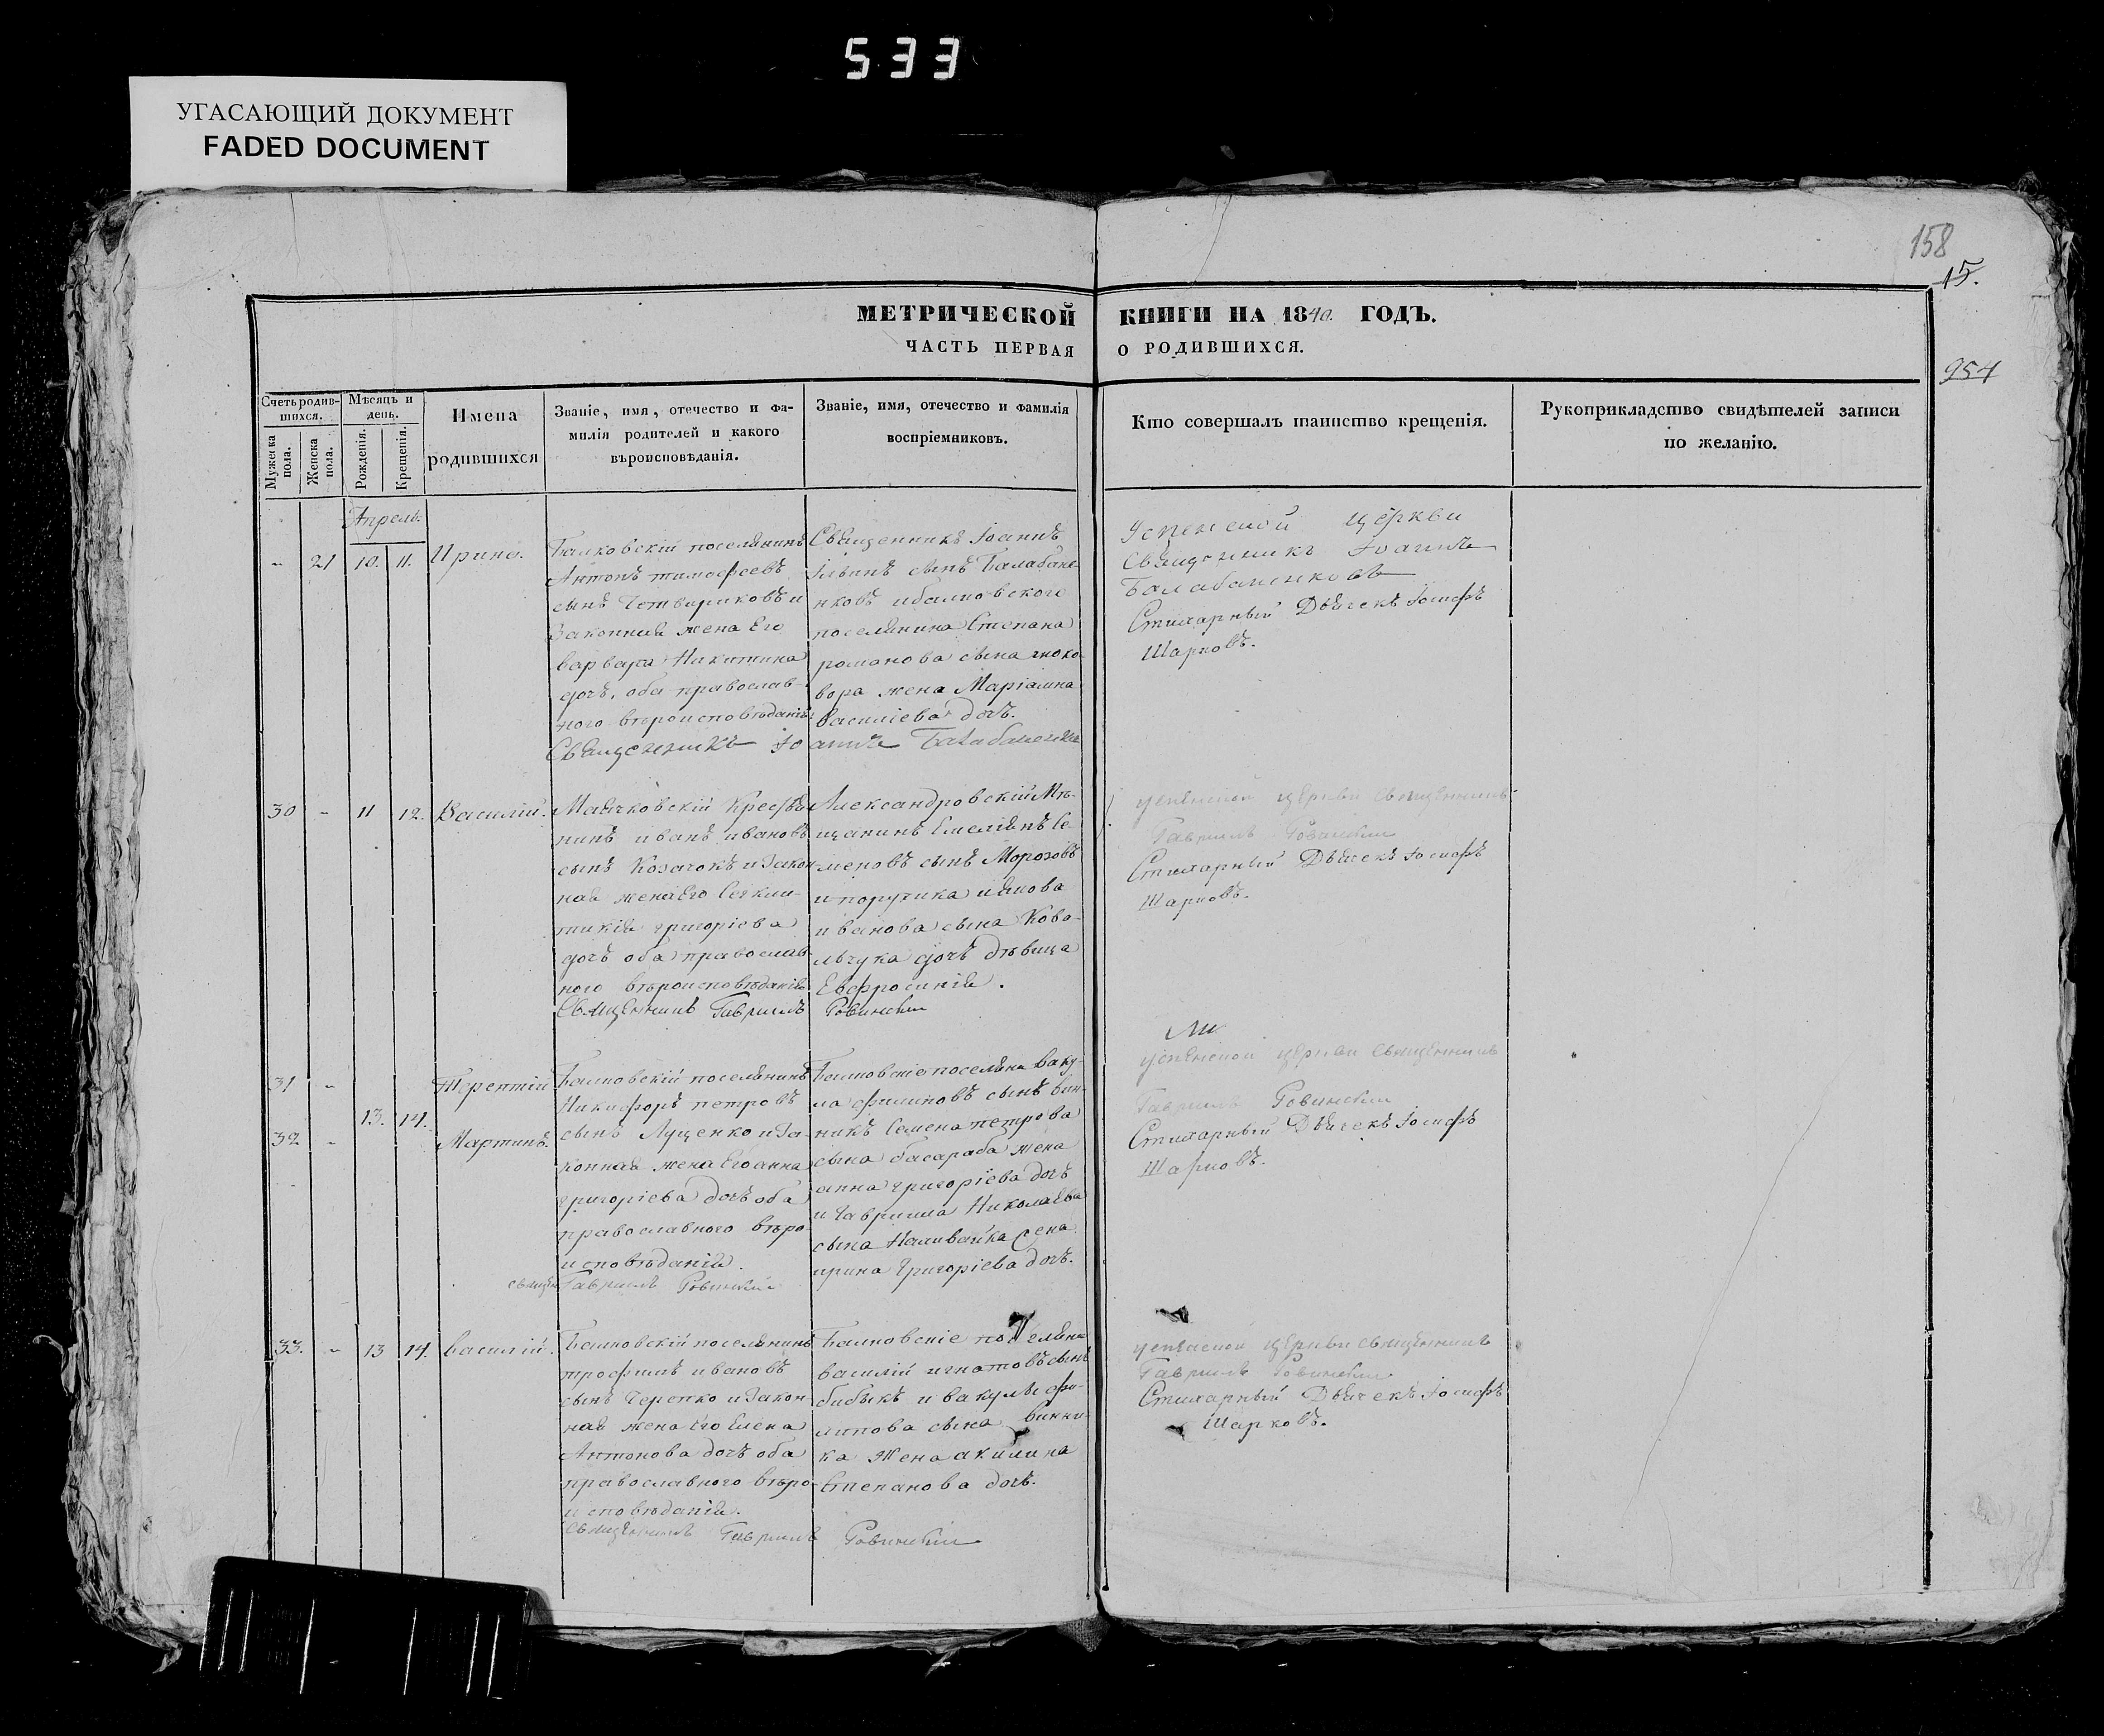 533
УГАСАЮЩИЙ ДОКУМЕНТ
FADED DOCUMENT
158
15.
254
МЕТРИЧЕСКОЙ КНИГИ НА 1840. ГОДЪ.
ЧАСТЬ ПЕРВАЯ О РОДИВШИХСЯ.
Счетъ родив-
шихся.
Мужеска пола.
Женска пола.
Мѣсяцъ и
день.
Рожденія.
Крещенія.
Имена
родившихся
Званіе, имя, отечество и фа-
милія родителей и какого
вѣроисповѣданія.
Званіе, имя, отечество и фамилія
воспріемниковъ.
Кто совершалъ таинство крещенія.
Рукоприкладство свидѣтелей записи
по желанію.
Апрель.
- 21 10. 11. Ирина.
Балковскій поселянинъ
Антонъ тимофеевъ
сынъ Четвериковъ и
Законная жена Его
варвара Никитина
дочъ, оба православ-
ного вѣроисповѣданія
Священникъ Іоаннъ
Ильинъ сынъ Балабане-
нковъ и балковского
поселянина Степана
романова сына
жена Маріамна
василіева дочъ.
Священникъ Іоаннъ Балабаненко
Успенской церкви
Священникъ Іоаннъ
Балабаненковъ
Стихарный Дьячекъ Іосифъ
Шарковъ.
30 - 11 12. Василій.
Маячковскій Кресть-
нинъ иванъ ивановъ
сынъ Козачокъ и закон-
ная жена Его Секли-
тикія григоріева
дочъ оба православ-
ного вѣроисповѣданія
Александровскій Мѣ-
щанинъ Емеліянъ Се-
меновъ сынъ Морозовъ
и порутчика иякова
иванова сына Кова-
льчука дочъ дѣвица
Евфросинія.
Священникъ Гавриилъ Ровинскій
успенской церкви священникъ
Гавриилъ Ровинскій
Стихарный Дьячекъ Іосифъ
Шарковъ.
31 - Терентій
13. 14.
32 - Мартинъ.
Балковскій поселянинъ
Никифоръ петровъ
сынъ Луценко и за-
конная жена Его анна
григоріева дочъ оба
православного вѣро-
исповѣданія.
Балковскіе поселяне ваку-
ла филиповъ сынъ вин-
никъ Семена петрова
сына басараба жена
анна григоріева дочъ
и Гавриила Николаева
сына Наливайка жена
ирина григоріева дочъ.
священ. Гавриилъ Ровинскій
успенской церкви священникъ
Гавриилъ Ровинскій
Стихарный Дьячекъ Іосифъ
Шарковъ.
33. - 13 14. василій.
Балковскій поселянинъ
трофимъ ивановъ
сынъ Черепко и закон-
ная жена Его Елена
Антонова дочъ оба
православного вѣро-
исповѣданія.
Балковскіе поселяне
василій игнатовъ сынъ
бибыкъ и вакулы фи-
липова сына винни-
ка жена акилина
Степанова дочъ.
священникъ Гавриилъ Ровинскій
успенской церкви священникъ
Гавриилъ Ровинскій
Стихарный Дьячекъ Іосифъ
Шарковъ.